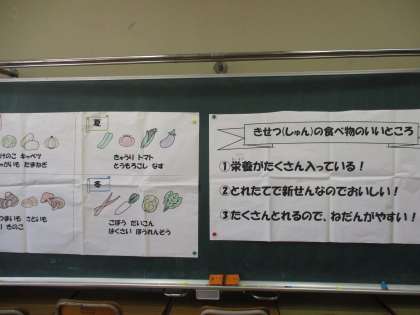 けのこ キャベツ
がいも たまねぎ
夏
きゅうり トマト
とうもろこし なす
つまいも さといも
きのこ
冬
ごぼう だいこん
はくさい ほうれんそう
きせつ(しゅん)の食べ物のいいところ
①栄養がたくさん入っている！
②とれたてで新せんなのでおいしい！
③たくさんとれるので、ねだんがやすい！